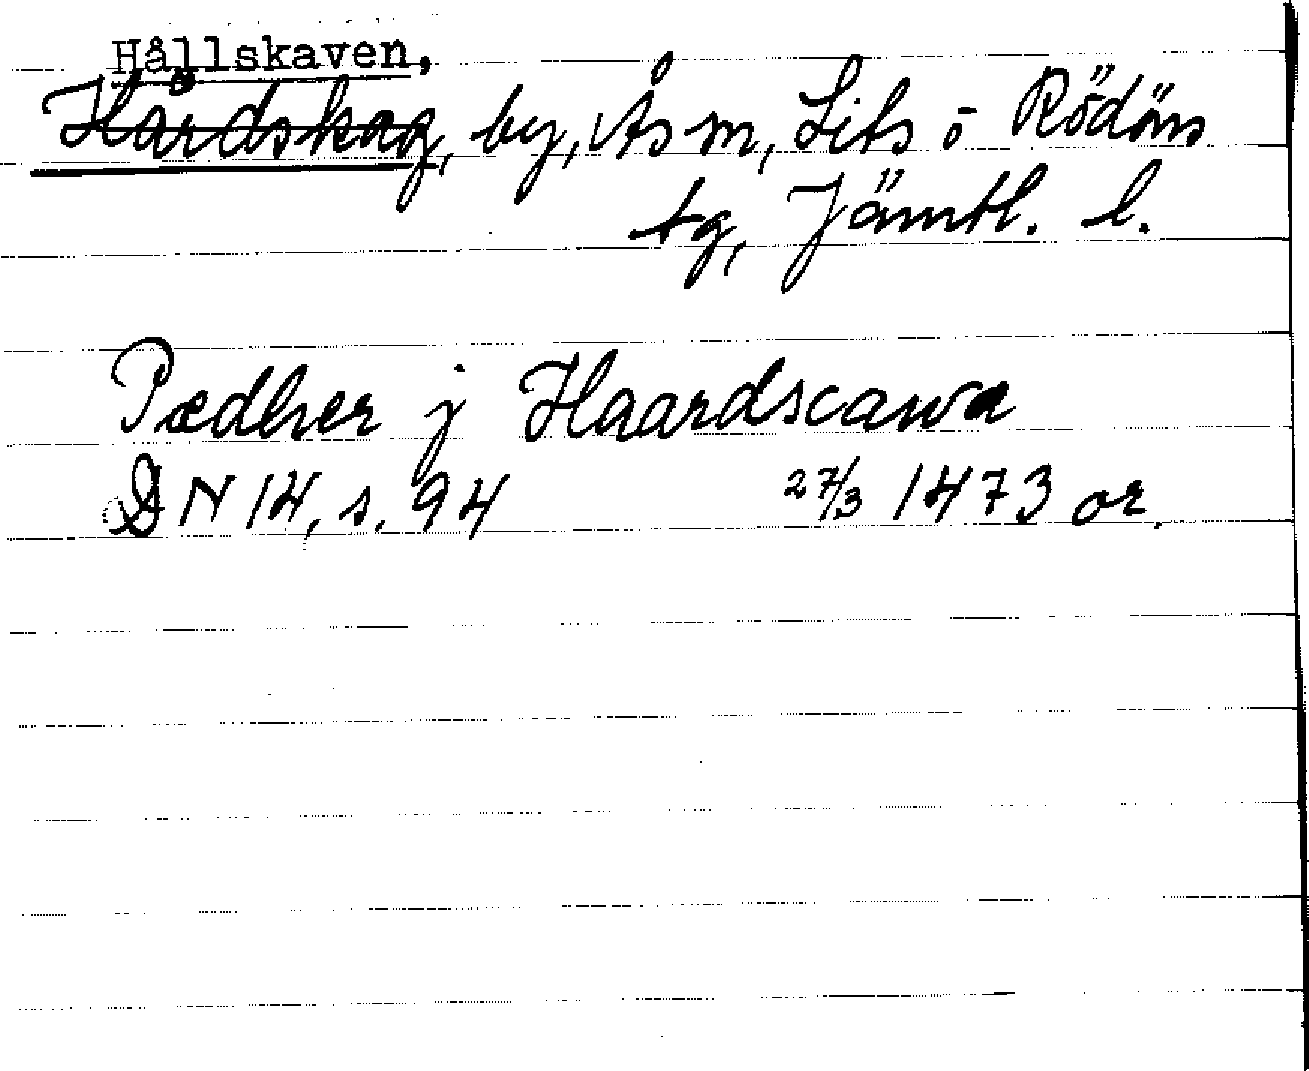 Hållskaven,
Hårdskag, by, Ås sn, Lits o Rödöns
tg, Jämtl. l.
Pædher j Haardscawa
DN 14, s. 94 27/3 1473 or.